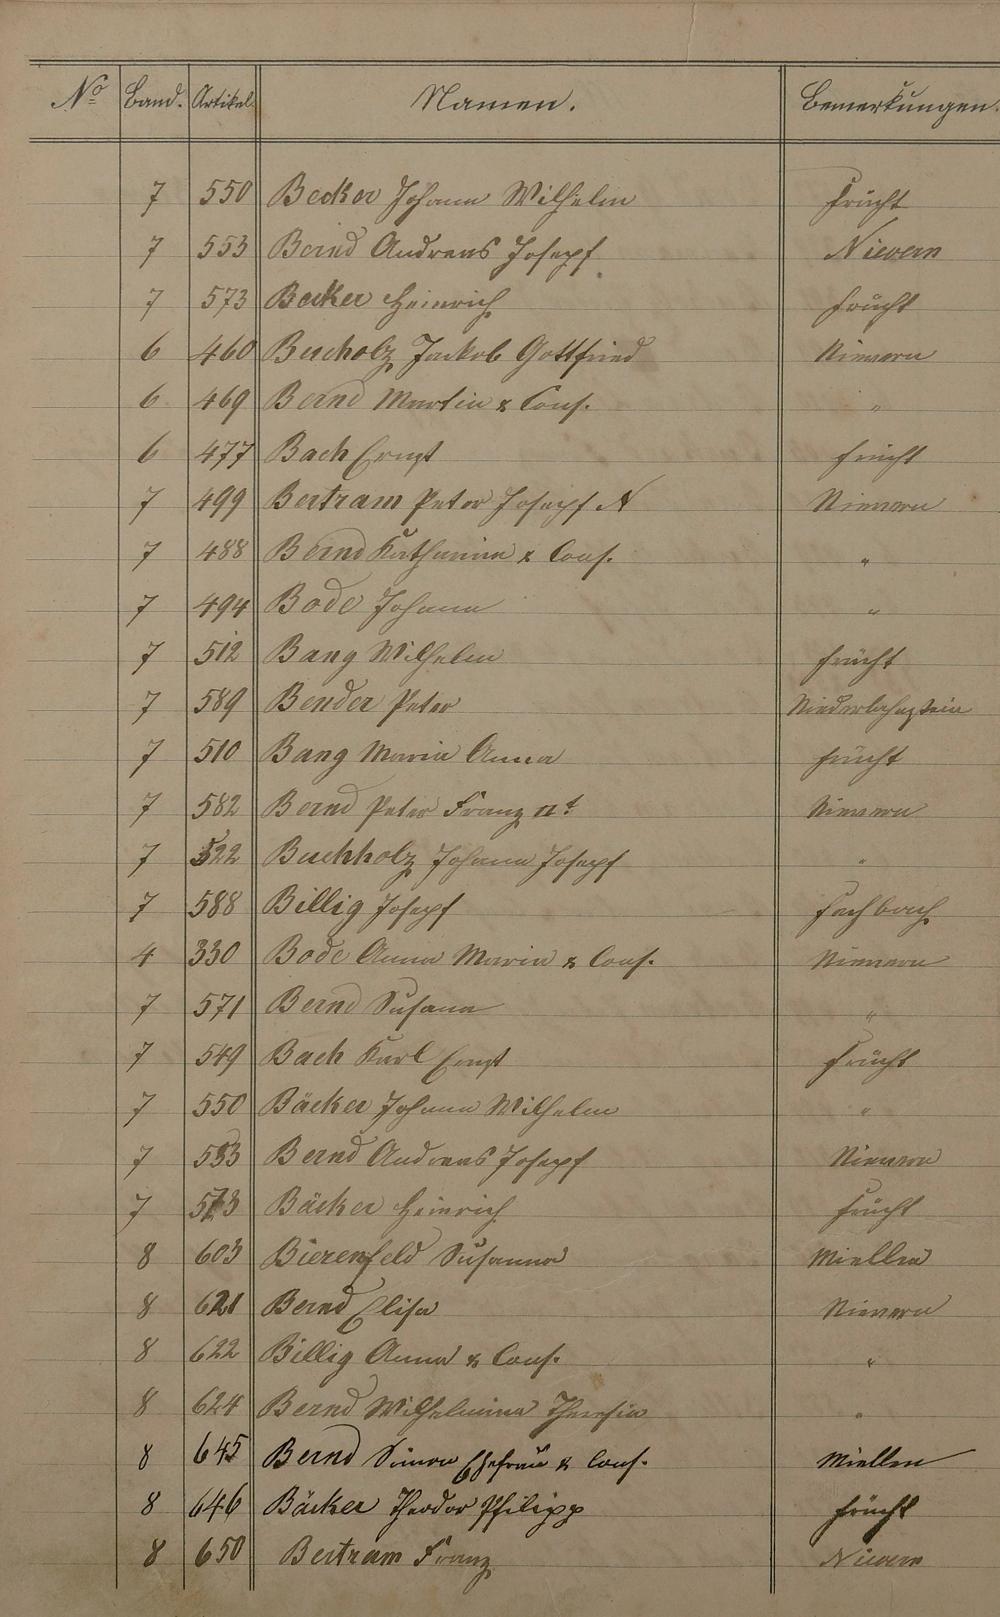 No Band. Artikel. Namen. Bemerkungen.
7 550 Becker Johann Wilhelm Frücht
7 553 Bernd Andreas Josepf Nievern
7 573 Becker Heinrich Frücht
6 460 Bucholz Jackob Gottfried Nievern
6 469 Bernd Martin & Cons. "
6 477 Bach Ernst Frücht
7 499 Bertram Peter Josepf N Nievern
7 488 Bernd Katharina & Cons. "
7 494 Bode Johann "
7 512 Bang Wilhelm Frücht
7 589 Bender Peter Niederlahnstein
7 510 Bang Maria Anna Frücht
7 582 Bernd Peter Franz IIt Nievern
7 522 Buchholz Johann Josepf "
7 588 Billig Josepf Fachbach
4 330 Bode Anna Maria & Cons. Nievern
7 571 Bernd Susana "
7 549 Bach Karl Ernst Frücht
7 550 Bäcker Johann Wilhelm "
7 553 Bernd Andreas Josepf Nievern
7 573 Bäcker Heinrich Frücht
8 603 Bierenfeld Susanna Miellen
8 621 Bernd Elisa Nievern
8 622 Billig Anna & Cons. "
8 624 Bernd Wilhelmina Theresia "
8 645 Bernd Simon Ehefrau & Cons. Miellen
8 646 Bäcker Theodor Philipp Frücht
8 650 Bertram Franz Nievern